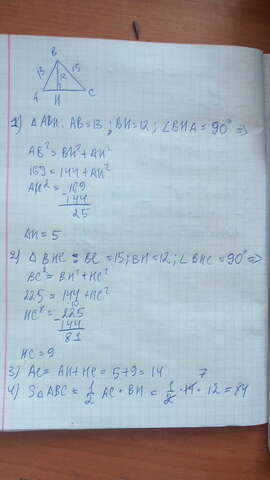 B
13 12 15
A H C
1) △ABH: AB=13; BH=12; ∠BHA=90° ⇒
AB²=BH²+AH²
169=144+AH²
AH²=169
-144
25
AH=5
2) △BHC: BC=15; BH=12; ∠BHC=90° ⇒
BC²=BH²+HC²
225=144+HC²
HC²=225
-144
81
HC=9
3) AC=AH+HC=5+9=14
4) S△ABC=1/2 AC·BH=1/2·14·12=84
7